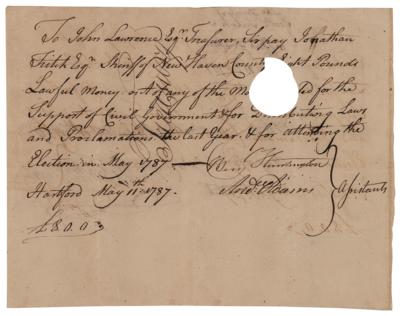 To John Lawrence Esqr. Treasurer, Sir pay Jonathan
Fitch Esqr. Sheriff of New Haven County Eight Pounds
Lawful Money out of any of the Mo ed for the
Support of Civil Government & for Distributing Laws
and Proclamations the last Year, & for attending the
Election in May 1787
Benj Huntington
Andw. Adams
Assistants
Hartford May 11th 1787.
£8.0.0